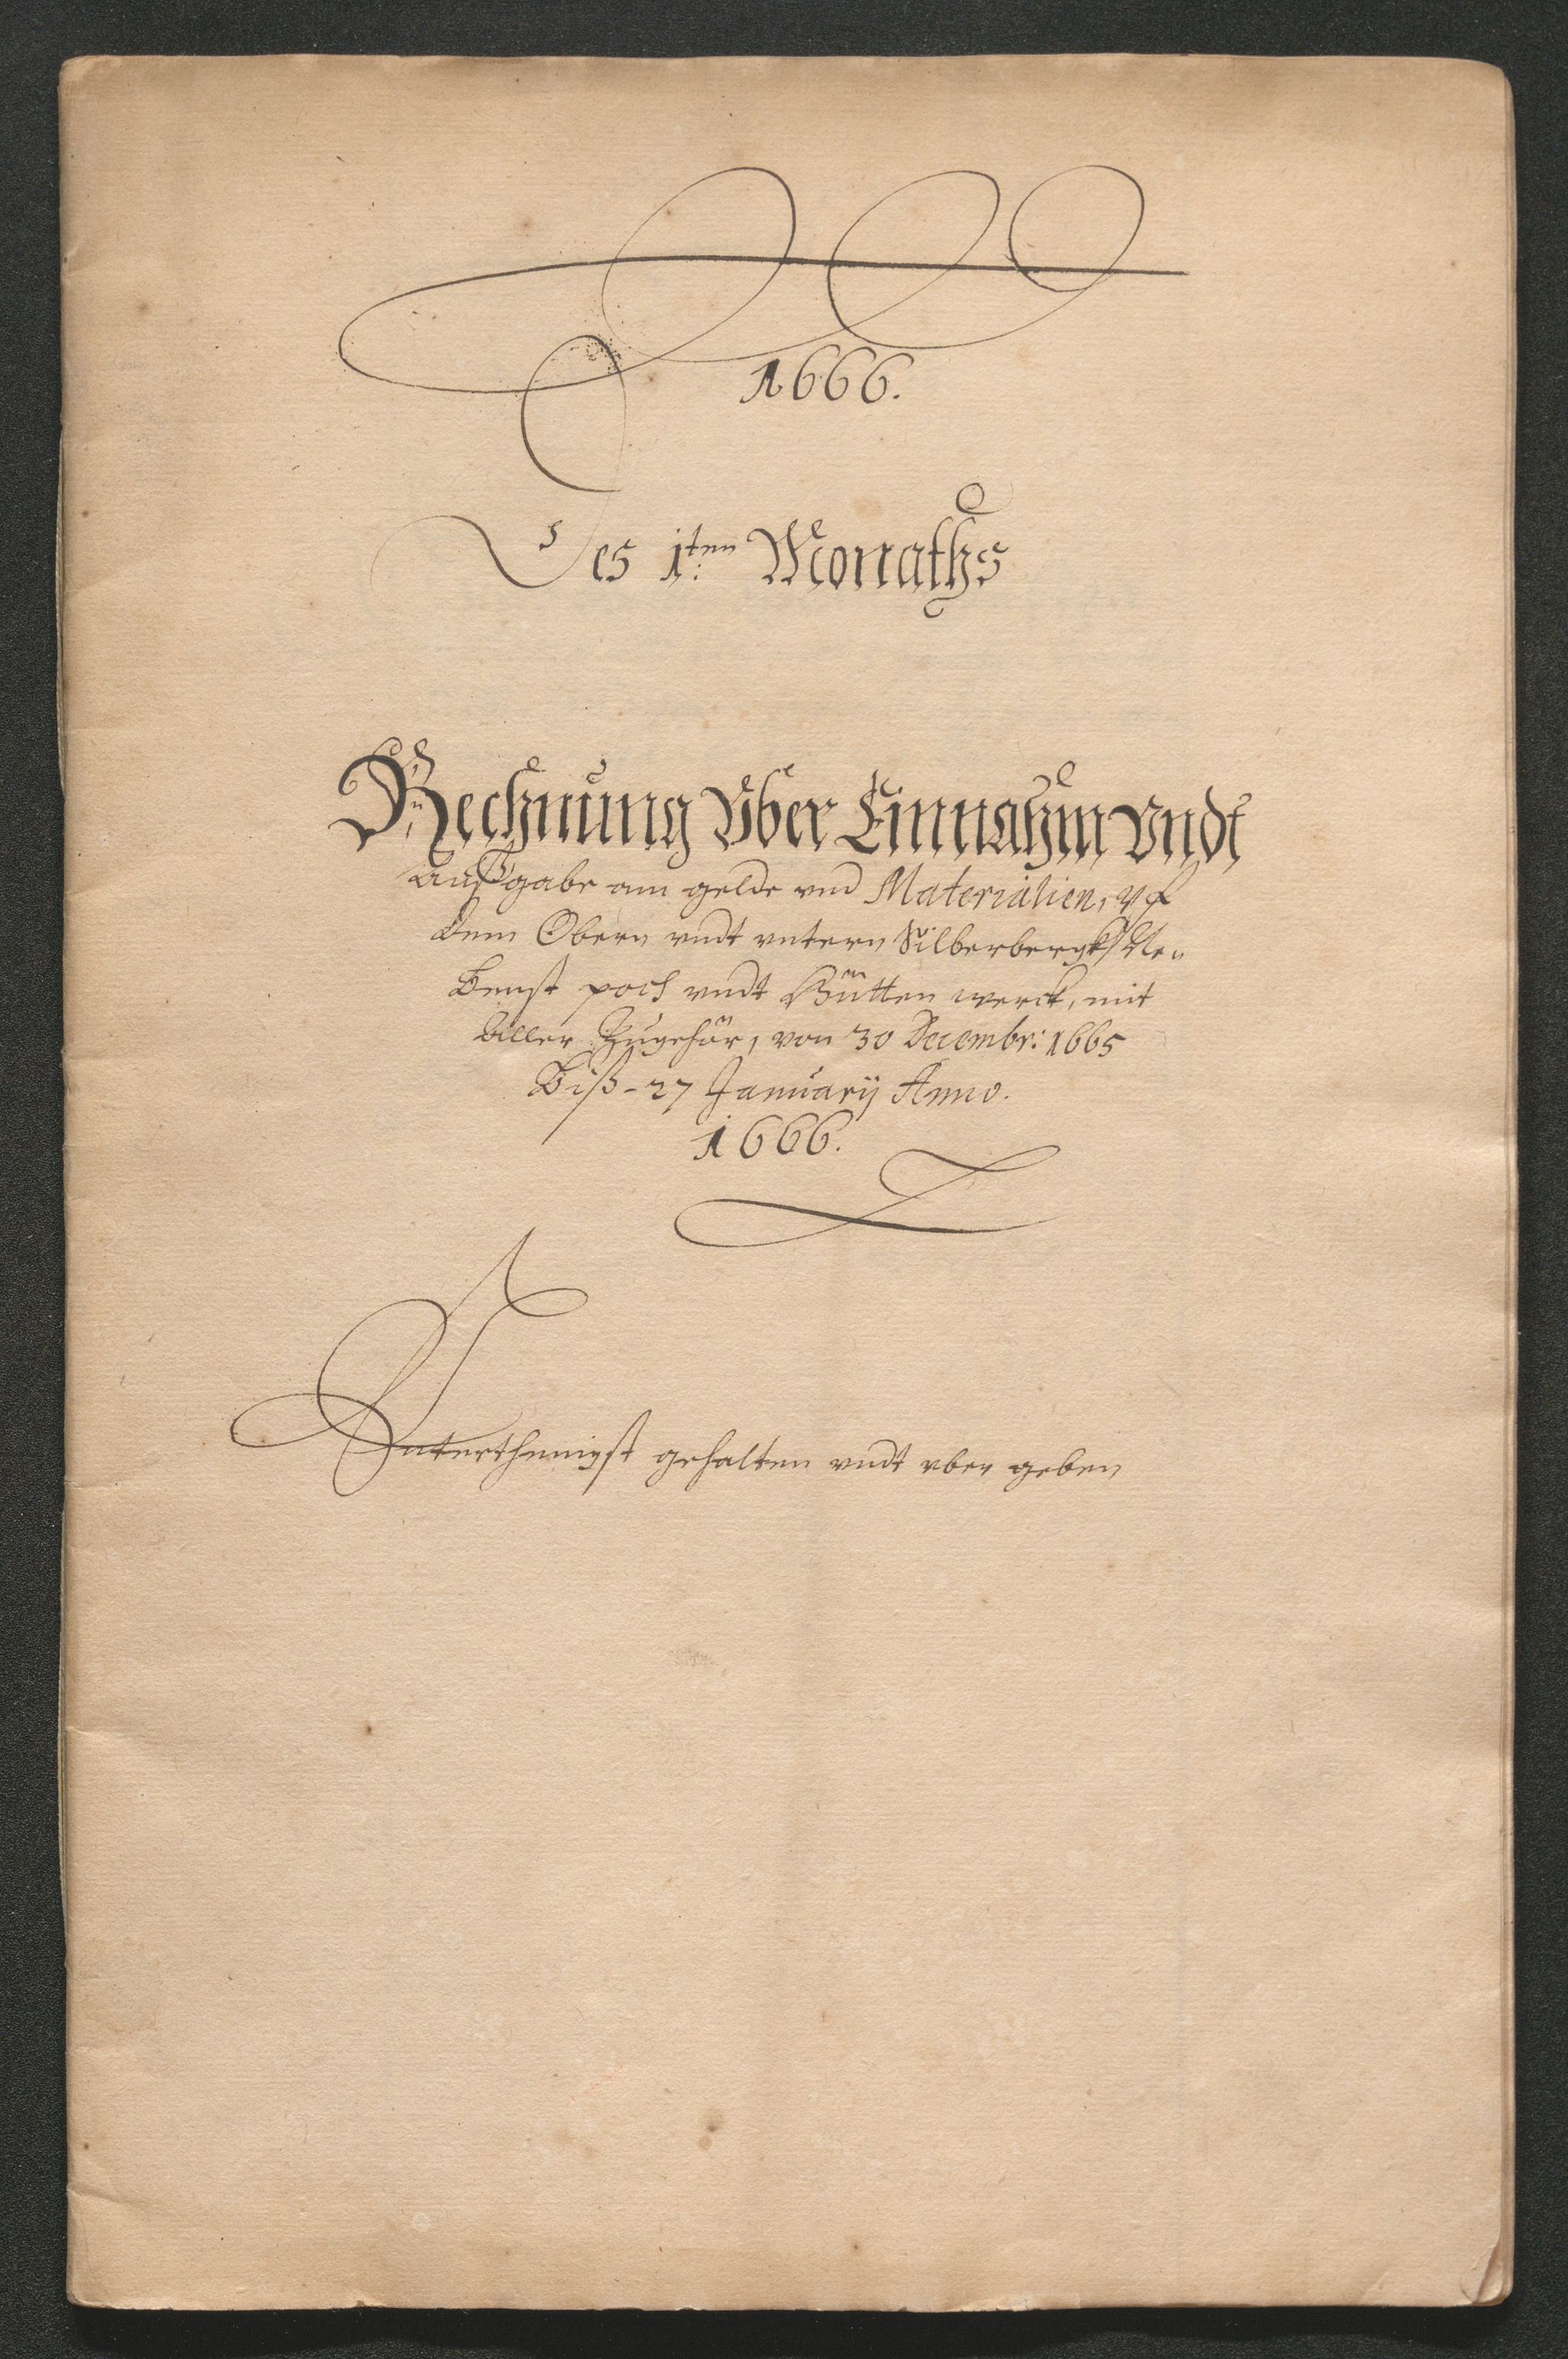 1666.
Des 1ten Monaths
Rechnung Vber Einnahm Vndt
Außgabe am gelde vnd Materialien, vf
dem Obern vndt vntern Silberbergk
poch vndt Hütten werck, mit
aller Zugehör, von 30 Decembr: 1665
Biß - 27 Januarij Anno.
1666.
Vnterthenigst gehalten vndt vber geben